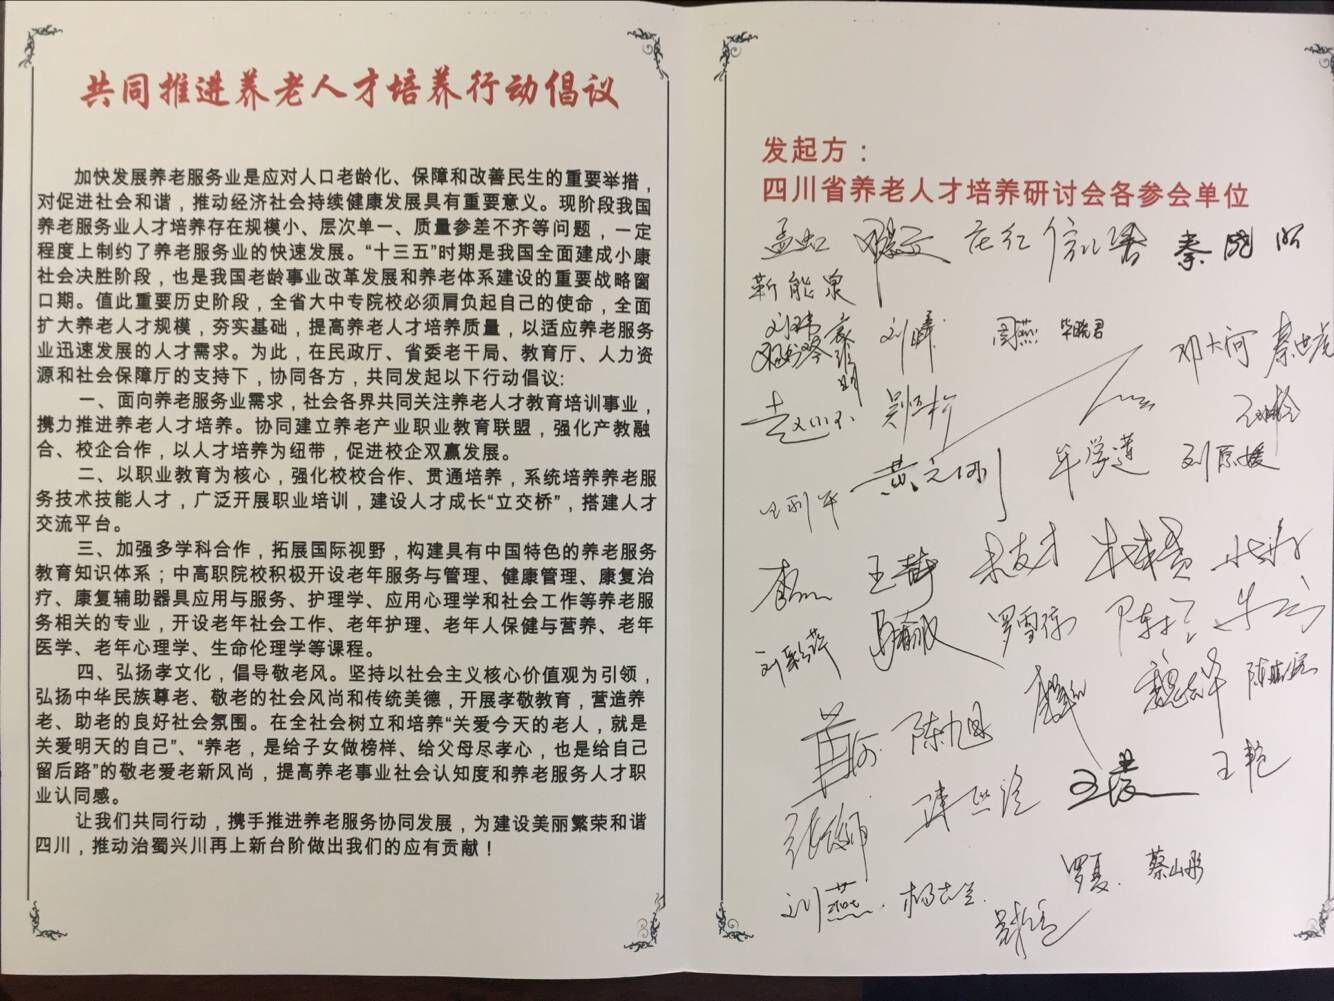 共同推进养老人才培养行动倡议
加快发展养老服务业是应对人口老龄化、保障和改善民生的重要举措，
对促进社会和谐，推动经济社会持续健康发展具有重要意义。现阶段我国
养老服务业人才培养存在规模小、层次单一、质量参差不齐等问题，一定
程度上制约了养老服务业的快速发展。“十三五”时期是我国全面建成小康
社会决胜阶段，也是我国老龄事业改革发展和养老体系建设的重要战略窗
口期。值此重要历史阶段，全省大中专院校必须肩负起自己的使命，全面
扩大养老人才规模，夯实基础，提高养老人才培养质量，以适应养老服务
业迅速发展的人才需求。为此，在民政厅、省委老干局、教育厅、人力资
源和社会保障厅的支持下，协同各方，共同发起以下行动倡议:
一、面向养老服务业需求，社会各界共同关注养老人才教育培训事业，
携力推进养老人才培养。协同建立养老产业职业教育联盟，强化产教融
合、校企合作，以人才培养为纽带，促进校企双赢发展。
二、以职业教育为核心，强化校校合作、贯通培养，系统培养养老服
务技术技能人才，广泛开展职业培训，建设人才成长“立交桥”，搭建人才
交流平台。
三、加强多学科合作，拓展国际视野，构建具有中国特色的养老服务
教育知识体系；中高职院校积极开设老年服务与管理、健康管理、康复治
疗、康复辅助器具应用与服务、护理学、应用心理学和社会工作等养老服
务相关的专业，开设老年社会工作、老年护理、老年人保健与营养、老年
医学、老年心理学、生命伦理学等课程。
四、弘扬孝文化，倡导敬老风。坚持以社会主义核心价值观为引领，
弘扬中华民族尊老、敬老的社会风尚和传统美德，开展孝敬教育，营造养
老、助老的良好社会氛围。在全社会树立和培养“关爱今天的老人，就是
关爱明天的自己”、“养老，是给子女做榜样、给父母尽孝心，也是给自己
留后路”的敬老爱老新风尚，提高养老事业社会认知度和养老服务人才职
业认同感。
让我们共同行动，携手推进养老服务协同发展，为建设美丽繁荣和谐
四川，推动治蜀兴川再上新台阶做出我们的应有贡献！
发起方：
四川省养老人才培养研讨会各参会单位
孟虹
靳能泉
周燕
邓大河
刘原媛
陈旭
王艳
刘燕
罗夏
蔡山彤